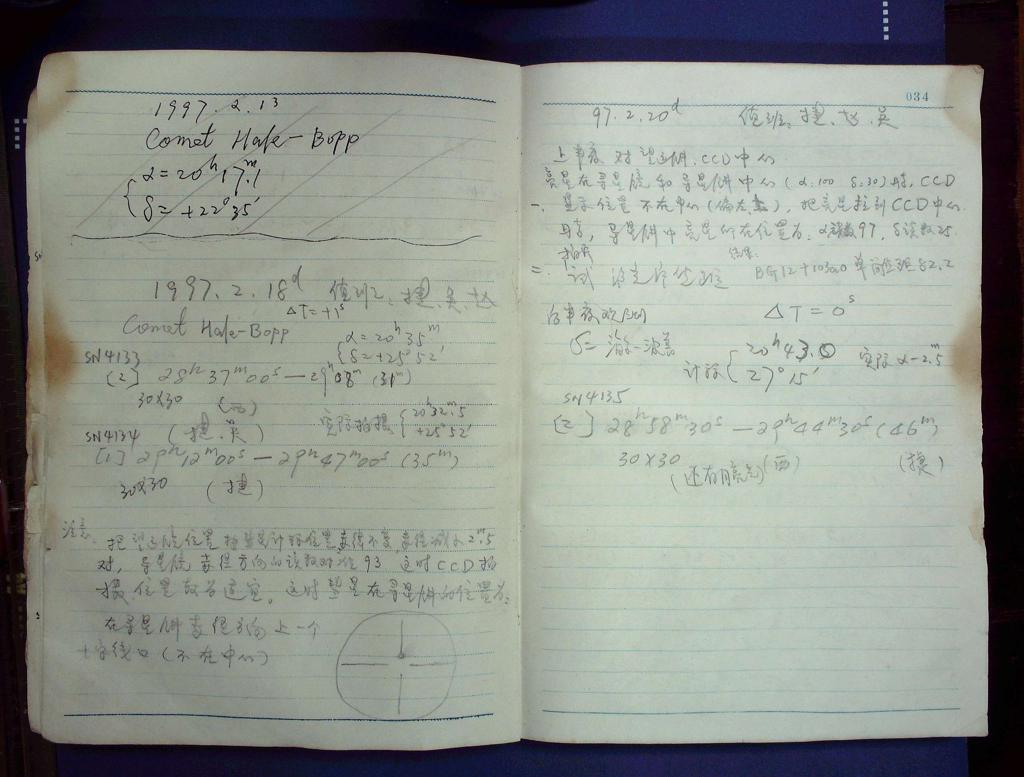 1997.2.13
Comet Hale-Bopp
α=20ʰ17ᵐ.1
δ=+22°35′
1997.2.18ᵈ 值班: 捷.吴.赵
ΔT=+1ˢ
Comet Hale-Bopp
α=20ʰ35ᵐ
δ=+25°52′
SN4133
[2] 28ʰ37ᵐ00ˢ—29ʰ08ᵐ (31ᵐ)
30×30 (西)
实际拍摄 20ʰ32ᵐ.5
+25°52′
SN4134 (捷.吴)
[1] 29ʰ12ᵐ00ˢ—29ʰ47ᵐ00ˢ (35ᵐ)
30×30 (捷)
注意: 把望远镜位置 计算位置 赤纬不变 赤经减小2ᵐ.5
时, 导星镜赤经方向的读数对准93 这时CCD拍
摄位置较为适宜. 这时 星在导星 的位置为:
在导星 赤经方向上一个
十字线口 (不在中心)
034
97.2.20ᵈ 值班: 捷.赵.吴
上半夜 对望远镜.CCD中心
一. 亮星在导星镜和导星 中心 (α:100 δ:30)时, CCD
显示位置不在中心(偏左 ), 把亮星拉到CCD中心
时, 导星 中亮星所在位置为: α读数97, δ读数25.
拍
结果:
二. 试 BG12+103aO
后半夜观测 ΔT=0ˢ
海尔-波普
计算 20ʰ43.0
27°15′
实际α-2ᵐ.5
SN4135
[2] 28ʰ58ᵐ30ˢ—29ʰ44ᵐ30ˢ (46ᵐ)
30×30 (西) (捷)
(还有月亮光)